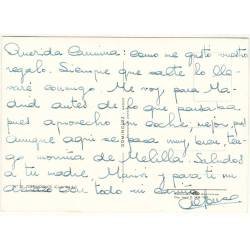 Querida Carmina: como me gustó vuestro
regalo. Siempre que salte lo lle-
varé conmigo. Me voy para Ma-
drid antes de lo que pensaba
pues aprovecho un coche, mejor, pues
aunque aquí se pasa muy bien, ten-
go morriña de Melilla. Saludos
a tu madre, Marisi y para ti mi
con todo mi cariño
DOMINGUEZ